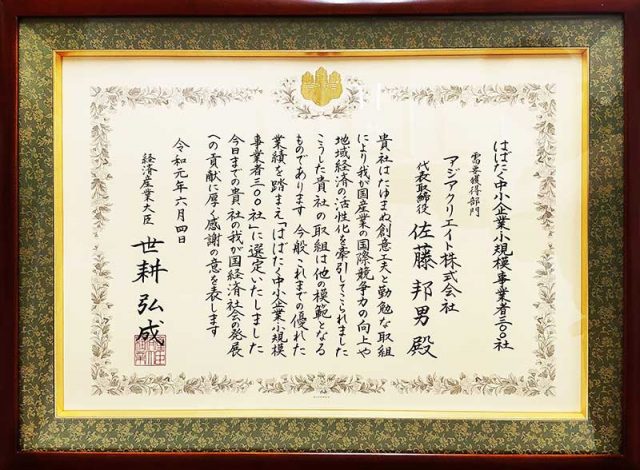 はばたく中小企業小規模事業者三〇〇社
需要獲得部門
アジアクリエイト株式会社
代表取締役 佐藤邦男殿
貴社はたゆまぬ創意工夫と勤勉な取組
により我が国産業の国際競争力の向上や
地域経済の活性化を牽引してこられました
こうした貴社の取組は他の模範となる
ものであります 今般これまでの優れた
業績を踏まえ「はばたく中小企業小規模
事業者三〇〇社」に選定いたしました
今日までの貴社の我が国経済社会の発展
への貢献に厚く感謝の意を表します
令和元年六月四日
経済産業大臣 世耕弘成